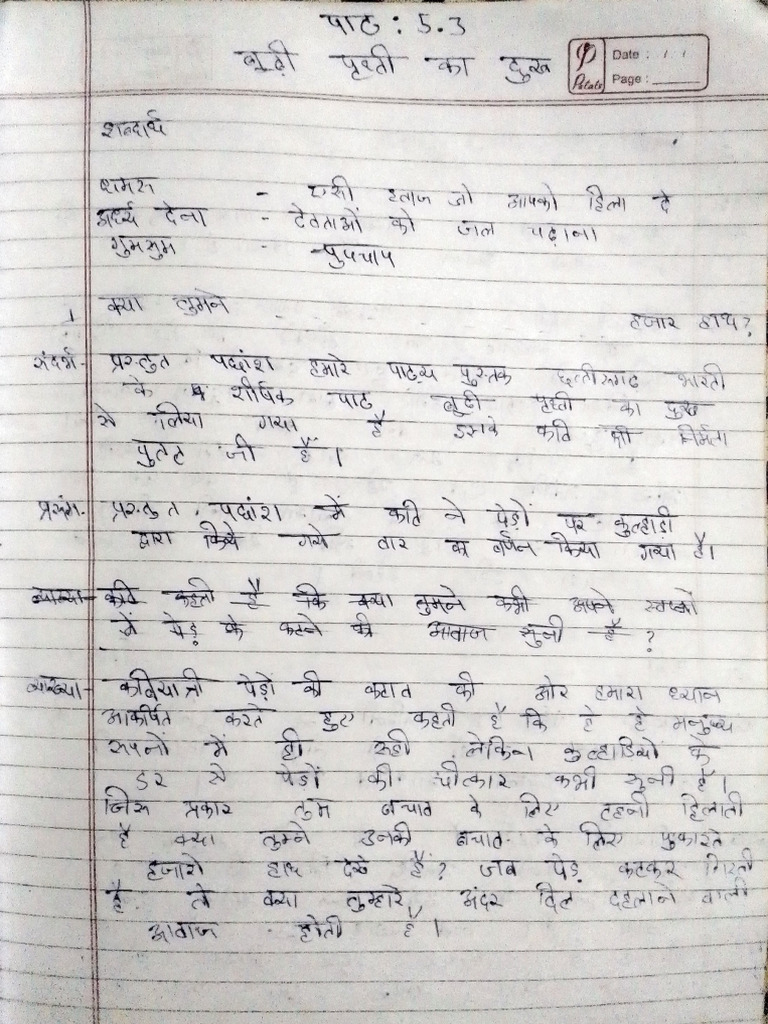 पाठ : 5.3
बूढ़ी पृथ्वी का दुख
Date : / /
Page :
शब्दार्थ
- एसी आवाज जो आपको हिला दे
अर्ध्य देना - देवताओं को जल चढ़ाना
गुमसुम - चुपचाप
1 क्या तुमने हजार हाथ?
संदर्भ- प्रस्तुत पद्यांश हमारे पाठ्य पुस्तक छत्तीसगढ़ भारती
के शीर्षक पाठ बूढ़ी पृथ्वी का दुख
से लिया गया है इसके कवि श्री निर्मला
पुतुल जी हैं।
प्रसंग- प्रस्तुत पद्यांश में कवि ने पेड़ो पर कुल्हाड़ी
द्वारा किये गये वार का वर्णन किया गया है।
व्याख्या- कवि कहती है कि क्या तुमने कभी अपने सपनो
में पेड़ के कटने की आवाज सुनी है ?
व्याख्या- कवियात्री पेड़ो की कटाव की ओर हमारा ध्यान
आकर्षित करते हुए कहती है कि हे हे मनुष्य
सपनों में ही सही लेकिन कुल्हाडियो के
डर से पेड़ों की चीत्कार कभी सुनी है।
जिस प्रकार तुम बचाव के लिए टहनी हिलाती
है क्या तुमने उनकी बचाव के लिए पुकारते
हजारो हाथ देखे हैं? जब पेड़ कटकर गिरती
है तो क्या तुम्हारे अंदर दिल दहलाने वाली
आवाज होती है।